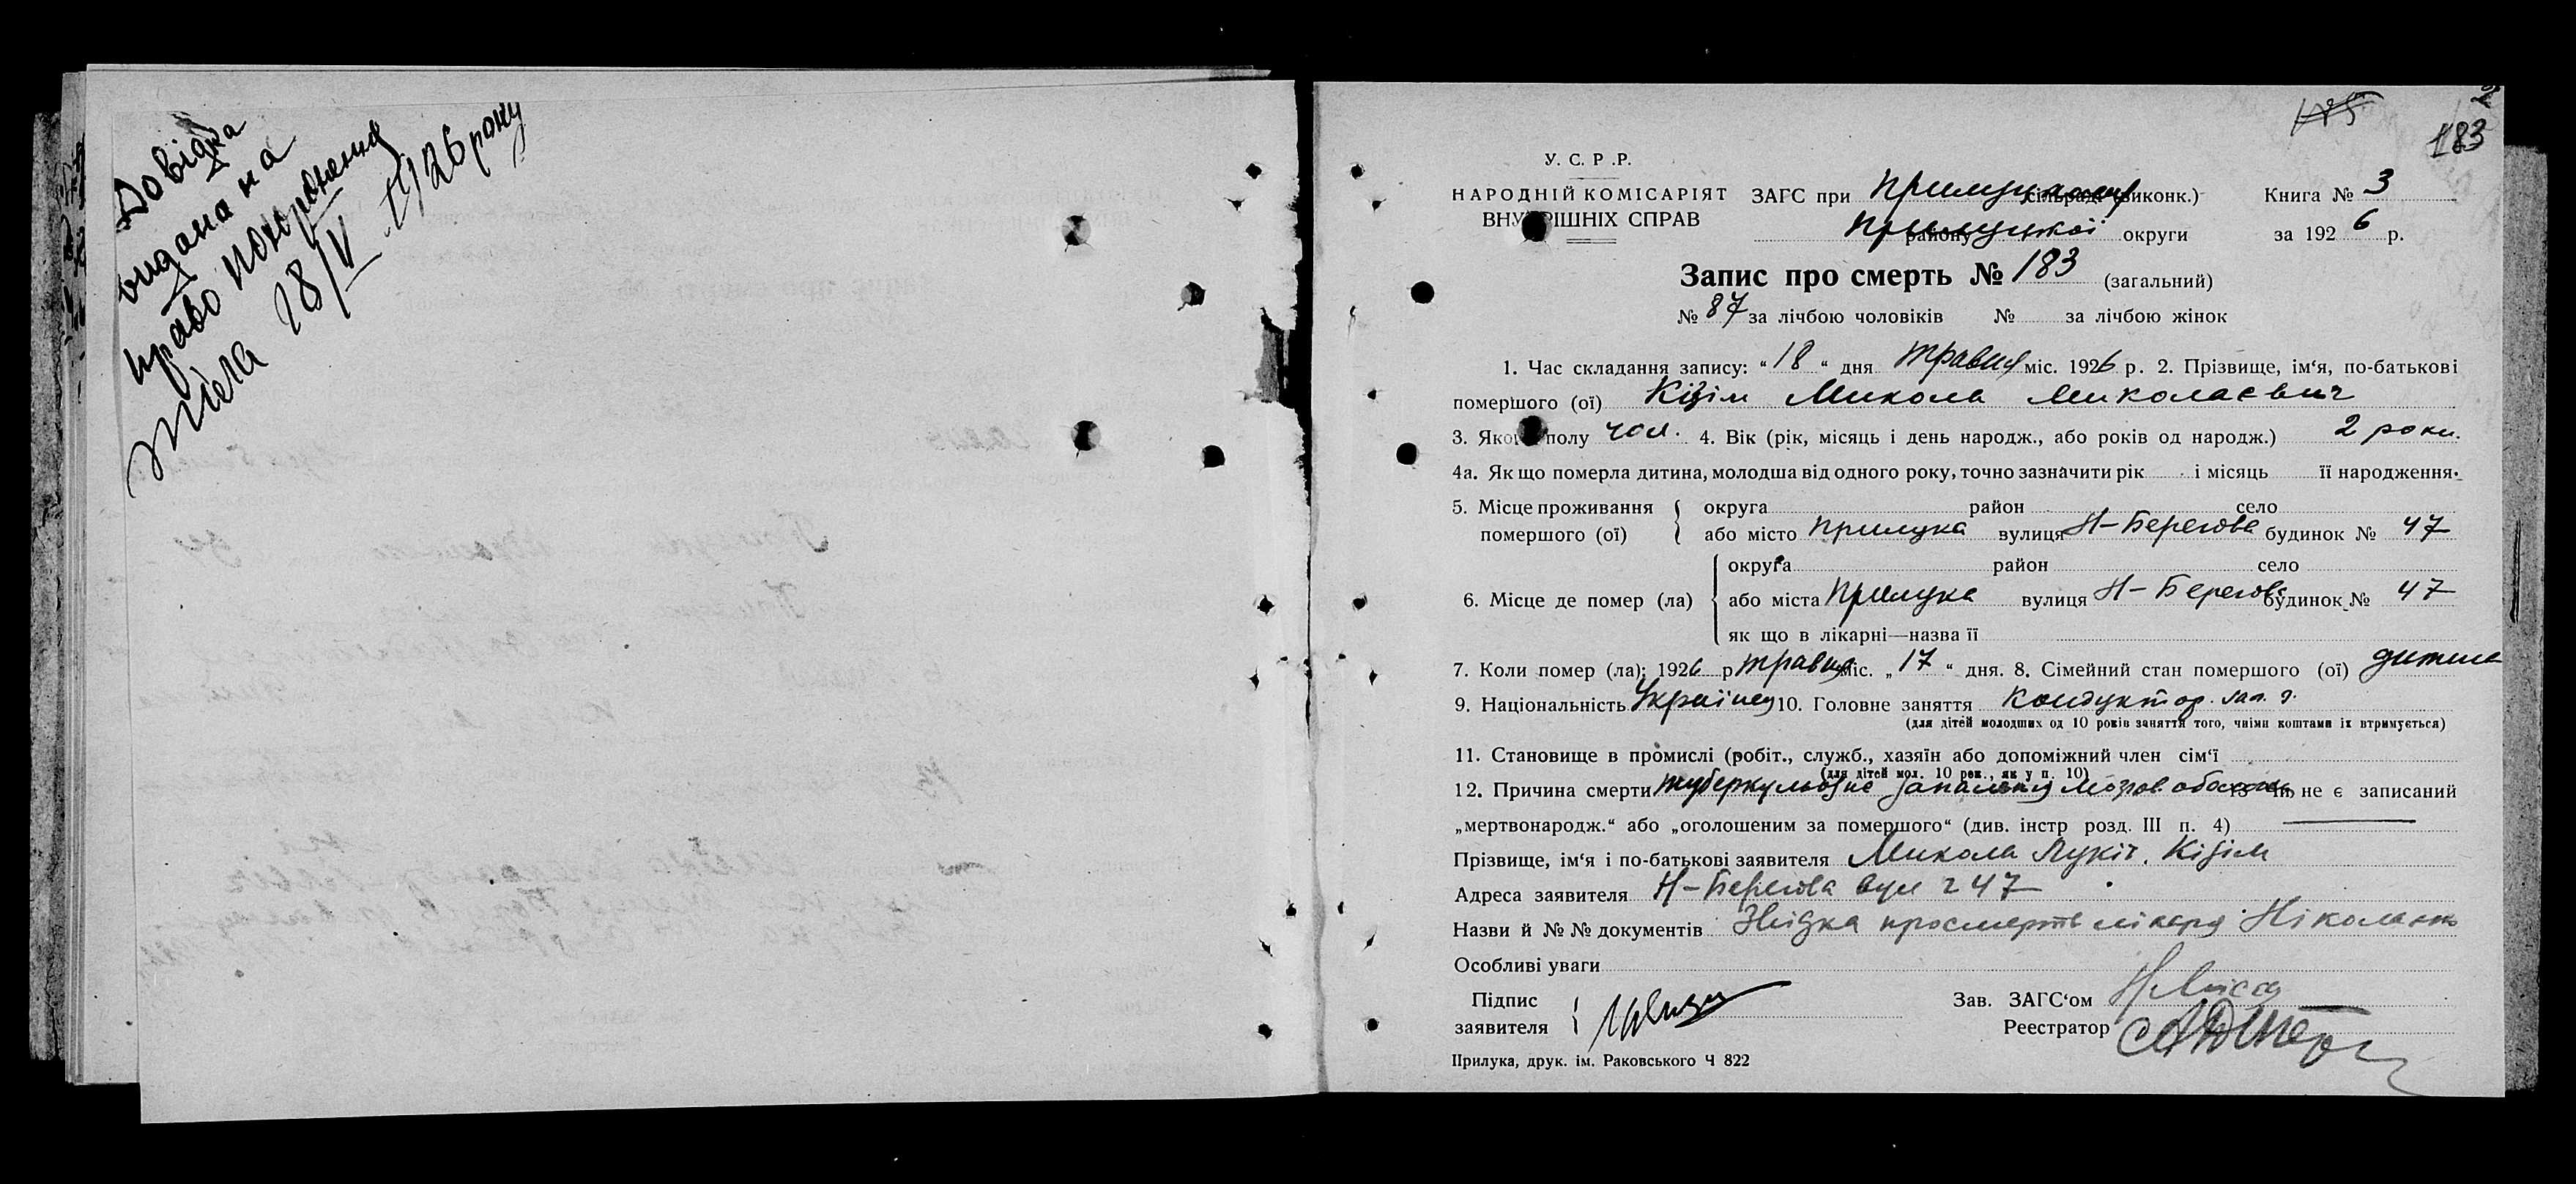 Довідка
видана на
право похоронення
тіла 18/V 1926 року
183
У. С. Р. Р.
НАРОДНІЙ КОМІСАРІЯТ
ВНУТРІШНІХ СПРАВ
ЗАГС при Прилуцькому сільраді (виконк.)
Прилуцької району округи
Книга № 3
за 1926 р.
Запис про смерть № 183 (загальний)
№ 87 за лічбою чоловіків № за лічбою жінок
1. Час складання запису: “18“ дня травня міс. 1926 р. 2. Прізвище, ім‘я, по-батькові
помершого (ої) Кізім Микола Миколаєвич
3. Якого полу чол. 4. Вік (рік, місяць і день народж., або років од народж.) 2 роки.
4а. Як що померла дитина, молодша від одного року, точно зазначити рік і місяць її народження.
5. Місце проживання помершого (ої) округа район село
або місто Прилука вулиця Н-Берегова будинок № 47
6. Місце де помер (ла) округа район село
або міста Прилука вулиця Н-Берегова будинок № 47
як що в лікарні—назва її
7. Коли помер (ла): 1926 р травня міс. „17“ дня. 8. Сімейний стан помершого (ої) дитина
9. Національність Українец 10. Головне заняття Кондуктор. зал. д.
(для дітей молодших од 10 років заняття того, чиїми коштами їх втримується)
11. Становище в промислі (робіт., служб., хазяїн або допоміжний член сім‘ї
(для дітей мол. 10 рок., як у п. 10)
12. Причина смерти туберкульозне запалення мозгов. 13 Чи не є записаний
„мертвонародж.“ або „оголошеним за помершого“ (див. інстр розд. III п. 4) —
Прізвище, ім‘я і по-батькові заявителя Микола Лукіч. Кізім
Адреса заявителя Н-Берегова вул ч 47
Назви й №№ документів Звідка про смерть лікаря Ніколаенко
Особливі уваги
Підпис заявителя
Зав. ЗАГС‘ом
Реестратор
Прилука, друк. ім. Раковського Ч 822